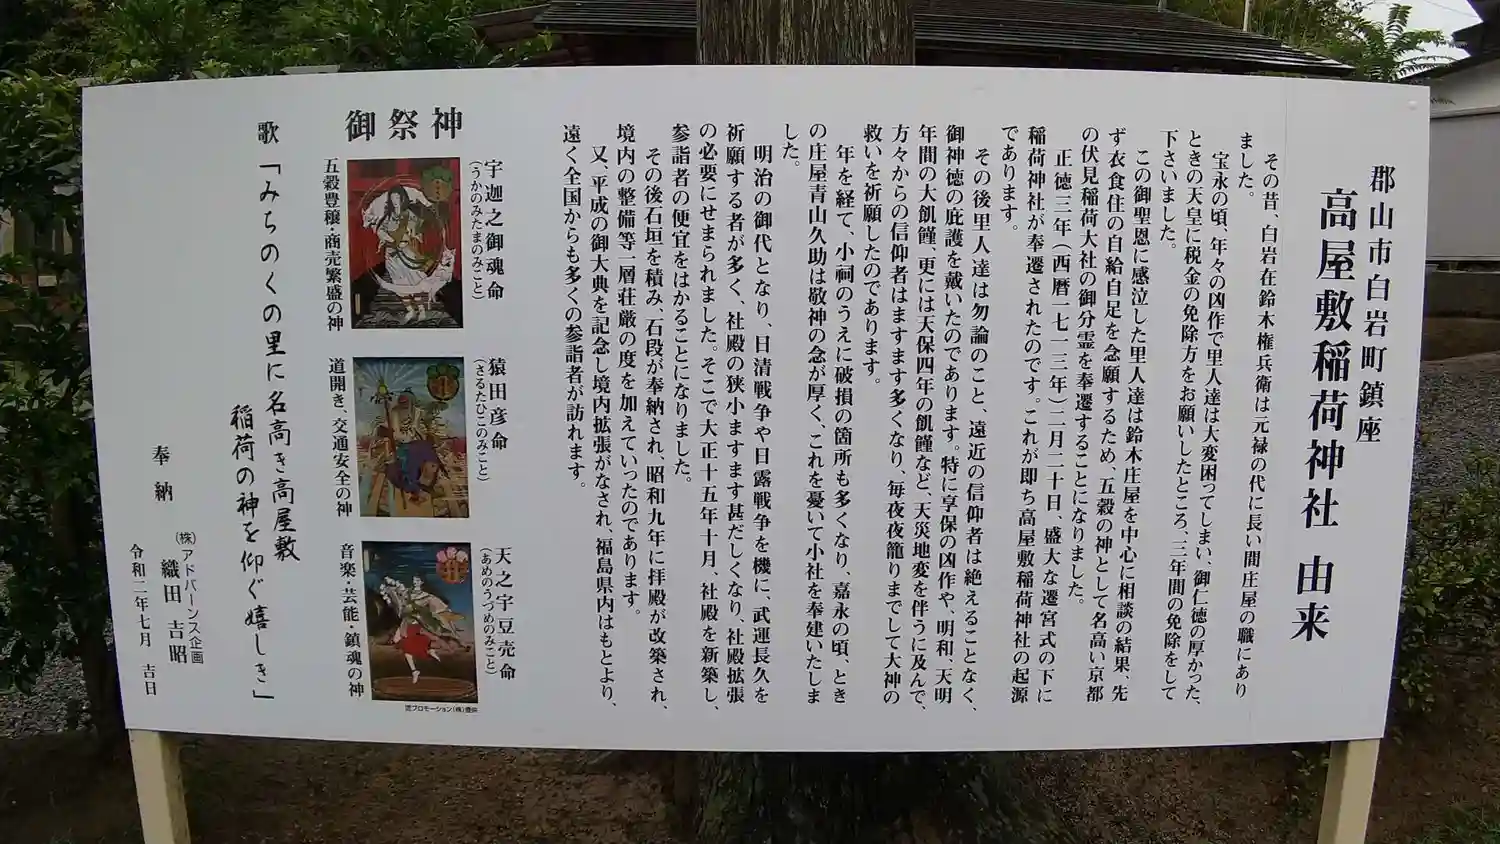 郡山市白岩町鎮座
高屋敷稲荷神社 由来
その昔、白岩在鈴木権兵衛は元禄の代に長い間庄屋の職にあり
ました。
宝永の頃、年々の凶作で里人達は大変困ってしまい、御仁徳の厚かった、
ときの天皇に税金の免除方をお願いしたところ、三年間の免除をして
下さいました。
この御聖恩に感泣した里人達は鈴木庄屋を中心に相談の結果、先
ず衣食住の自給自足を念願するため、五穀の神として名高い京都
の伏見稲荷大社の御分霊を奉遷することになりました。
正徳三年(西暦一七一三年)二月二十日、盛大な遷宮式の下に
稲荷神社が奉遷されたのです。これが即ち高屋敷稲荷神社の起源
であります。
その後里人達は勿論のこと、遠近の信仰者は絶えることなく、
御神徳の庇護を戴いたのであります。特に享保の凶作や、明和、天明
年間の大飢饉、更には天保四年の飢饉など、天災地変を伴うに及んで、
方々からの信仰者はますます多くなり、毎夜夜籠りまでして大神の
救いを祈願したのであります。
年を経て、小祠のうえに破損の箇所も多くなり、嘉永の頃、とき
の庄屋青山久助は敬神の念が厚く、これを憂いて小社を奉建いたしま
した。
明治の御代となり、日清戦争や日露戦争を機に、武運長久を
祈願する者が多く、社殿の狭小ますます甚だしくなり、社殿拡張
の必要にせまられました。そこで大正十五年十月、社殿を新築し、
参詣者の便宜をはかることになりました。
その後石垣を積み、石段が奉納され、昭和九年に拝殿が改築され、
境内の整備等一層荘厳の度を加えていったのであります。
又、平成の御大典を記念し境内拡張がなされ、福島県内はもとより、
遠く全国からも多くの参詣者が訪れます。
御祭神
宇迦之御魂命
(うかのみたまのみこと)
五穀豊穣・商売繁盛の神
猿田彦命
(さるたひこのみこと)
道開き、交通安全の神
天之宇豆売命
(あめのうづめのみこと)
音楽・芸能・鎮魂の神
歌「みちのくの里に名高き高屋敷
稲荷の神を仰ぐ嬉しき」
奉納
(株)アドバーンス企画
織田 吉昭
令和二年七月 吉日